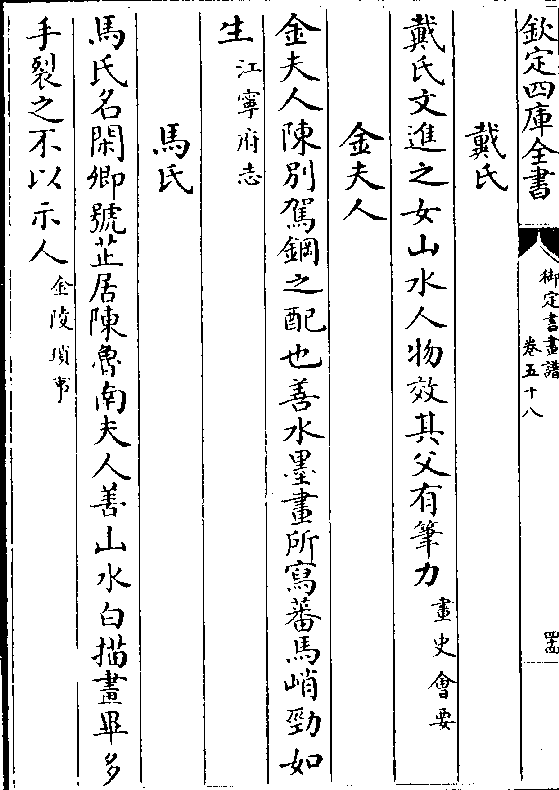 欽定四庫全書
御定書畫譜
卷五十八
戴氏
戴氏文進之女山水人物效其父有筆力畫史會要
金夫人
金夫人陳別駕鋼之配也善水墨畫所寫蕃馬峭勁如
生江寧府志
馬氏
馬氏名閑卿號芷居陳魯南夫人善山水白描畫畢多
手裂之不以示人金陵瑣事